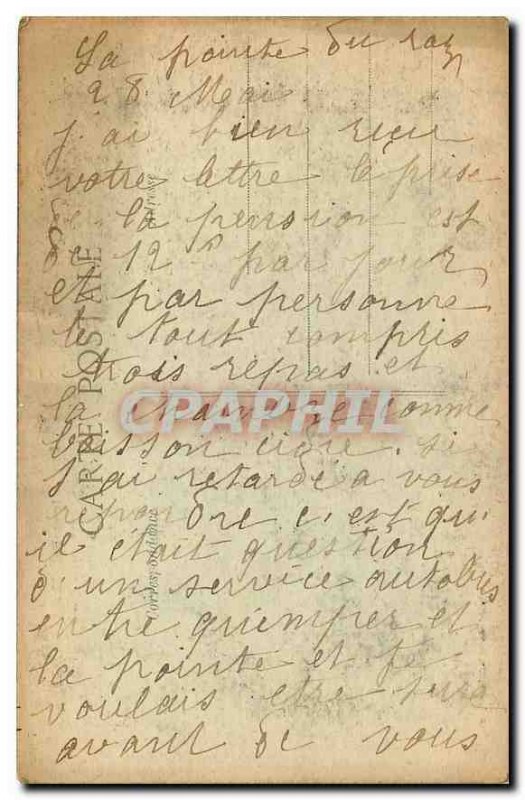 La pointe du raz
28 Mai
j'ai bien reçu
votre lettre le prise
de la pension est
de 12 f par jour
et par personne
le tout compris
trois repas et
la chambre comme
boisson cidre. si
j'ai retardé a vous
repondre c'est qu'
il etait question
d'un service autobus
entre quimper et
la pointe et je
voulais etre
avant de vous
CARTE POSTALE
Correspondance
Adresse
CPAPHIL